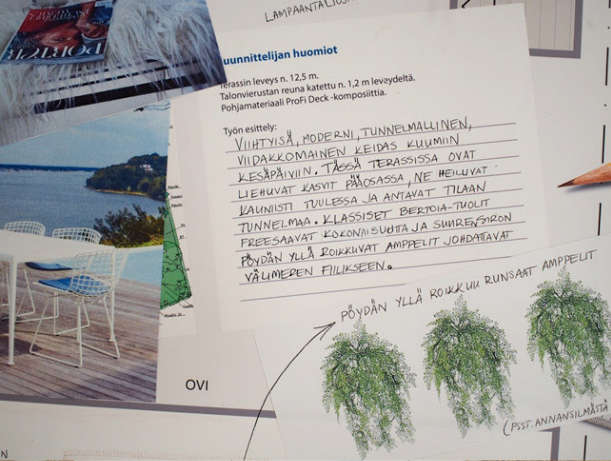 LAMPAANTALJOJ
PORTER
uunnittelijan huomiot
Terassin leveys n. 12,5 m.
Talonvierustan reuna katettu n. 1,2 m leveydeltä.
Pohjamateriaali ProFi Deck -komposiittia.
Työn esittely:
VIIHTYISÄ, MODERNI, TUNNELMALLINEN,
VIIDAKKOMAINEN KEIDAS KUUMIIN
KESÄPÄIVIIN. TÄSSÄ TERASSISSA OVAT
LIEHUVAT KASVIT PÄÄOSASSA, NE HEILUVAT
KAUNIISTI TUULESSA JA ANTAVAT TILAAN
TUNNELMAA. KLASSISET BERTOIA-TUOLIT
FREESAAVAT KOKONAISUUTTA JA SUURENSIRON
PÖYDÄN YLLÄ ROIKKUVAT AMPPELIT JOHDATTAVAT
VÄLIMEREN FIILIKSEEN.
PÖYDÄN YLLÄ ROIKKUU RUNSAAT AMPPELIT
OVI
(PSST. ANNANSILMÄSTÄ
N